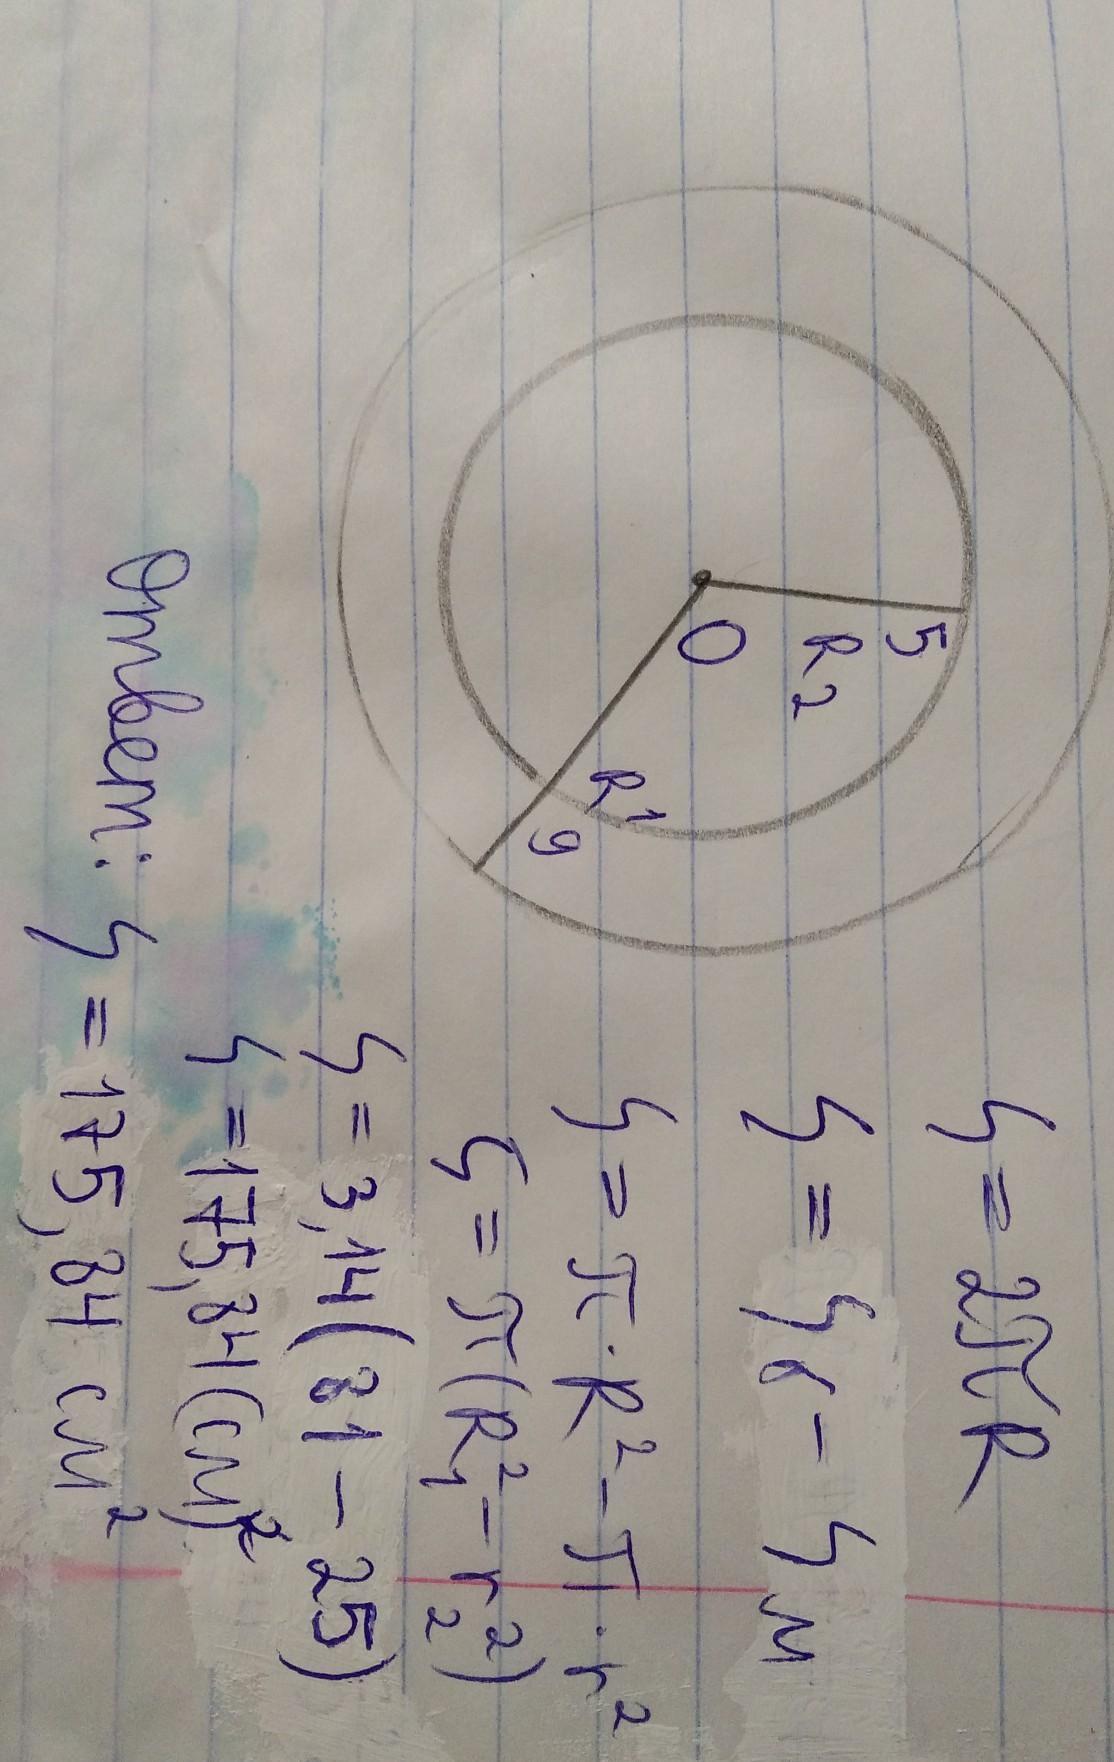 5
R2
O
R1
9
S = 2πR
S = Sб - Sм
S = π·R² - π·r²
S = π(R₁² - r₂²)
S = 3,14(81 - 25)
S = 175,84(см)²
Ответ: S = 175,84 см²